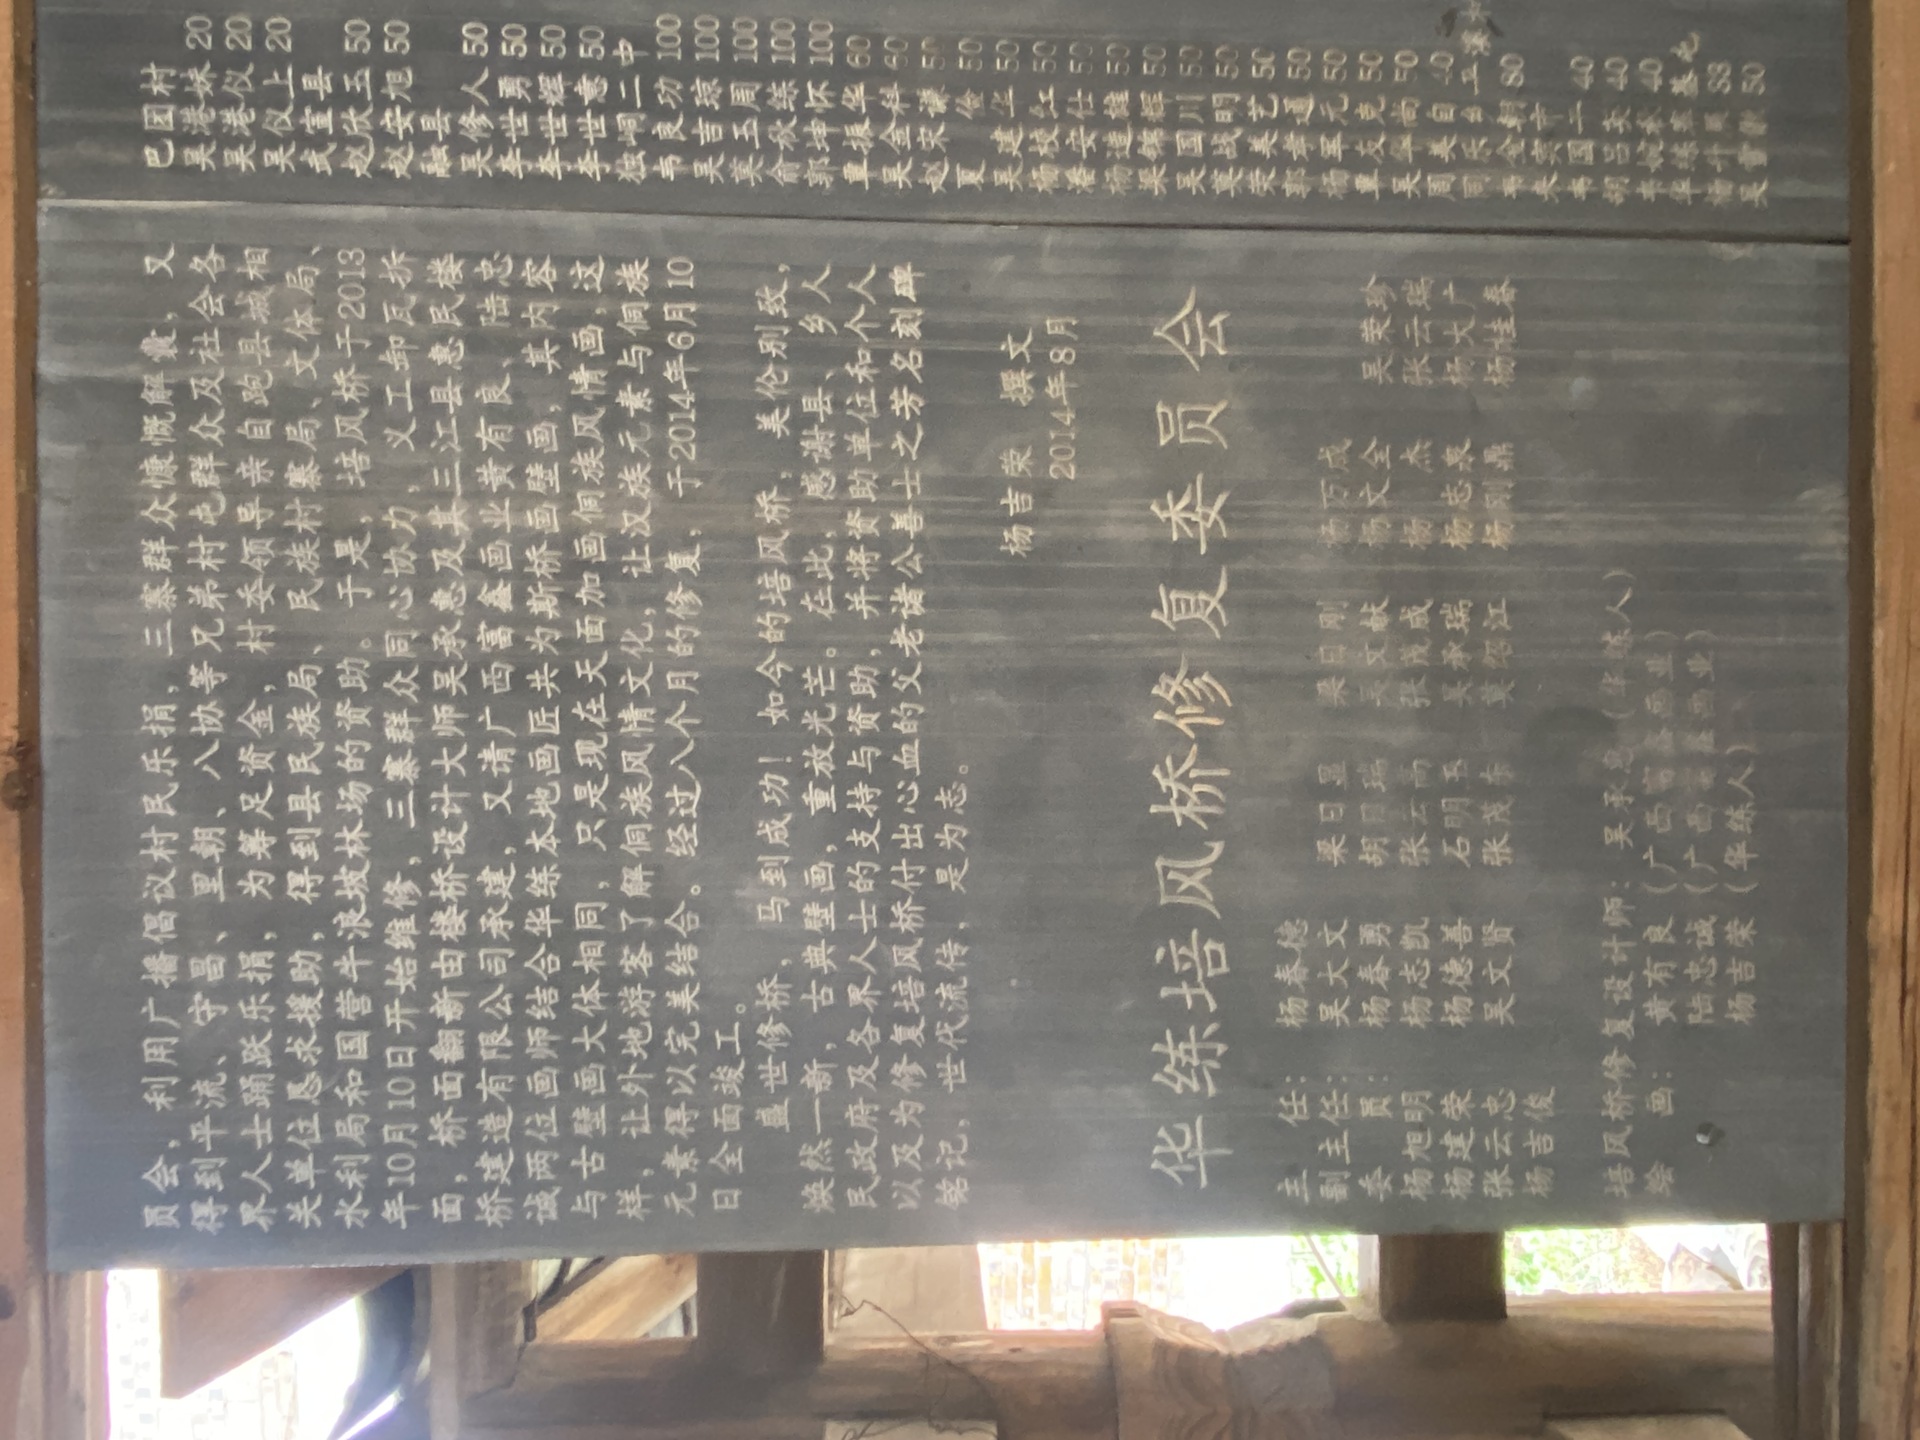 员会，利用广播倡议村民乐捐，三寨群众慷慨解囊，又
得到平流、守昌、里朝、八协等兄弟村屯群众及社会各
界人士踊跃乐捐，为筹足资金，村委领导亲自跑县城相
关单位恳求援助，得到县民族局、民族村寨局、文体局、
水利局和国营牛浪坡林场的资助。于是，培风桥于2013
年10月10日开始维修，三寨群众同心协力，义工卸瓦拆
面，桥面翻新由楼桥设计大师吴承惠及其三江县惠民楼
桥建造有限公司承建，又请广西富鑫画业黄有良、陆忠
诚两位画师结合华练本地画匠共为斯桥画壁画，其内容
与古壁画大体相同，只是现在天面加画侗族风情画，这
样，让外地游客了解侗族风情文化，让汉族元素与侗族
元素得以完美结合。经过八个月的修复，于2014年6月10
日全面竣工。
盛世修桥，马到成功！如今的培风桥，美伦别致，
焕然一新，古典壁画，重放光芒。在此，感谢县、乡人
民政府及各界人士的支持与资助，并将资助单位和个人
以及为修复培风桥付出心血的父老诸公善士之芳名刻碑
铭记，世代流传，是为志。
杨吉荣 撰文
2014年8月
华练培风桥修复委员会
主 任：杨春德
副主任：吴大文 梁日显 梁日刚 杨万成
委 员：杨春勇 胡 瑞 吴文献 杨文全 吴荣珍
杨旭明 杨志凯 张云高 张茂威 杨 杰 张云瑞
杨建荣 杨德善 石明玉 吴承瑞 杨志泉 杨大广
张云忠 吴文贤 张茂东 莫绍江 杨刚鼎 杨桂春
杨吉俊
培风桥修复设计师：吴承惠（华练人）
绘 画：黄有良（广西富鑫画业）
陆忠诚（广西富鑫画业）
杨吉荣（华练人）
巴团村
吴港妹 20
吴港仪 20
吴仪上 20
武宣县
赵欣玉 50
赵安旭 50
融县
吴修人 50
李世勇 50
李世程 50
李世意 50
独峒二中
韦良功 100
吴吉琼 100
莫玉周 100
俞秋练 100
郭坤怀 100
吴金科 60
赵宋 50
夏 俭 50
吴建华 50
杨校红 50
潘安仕 50
吴国川 50
莫战明 50
荣美艺 50